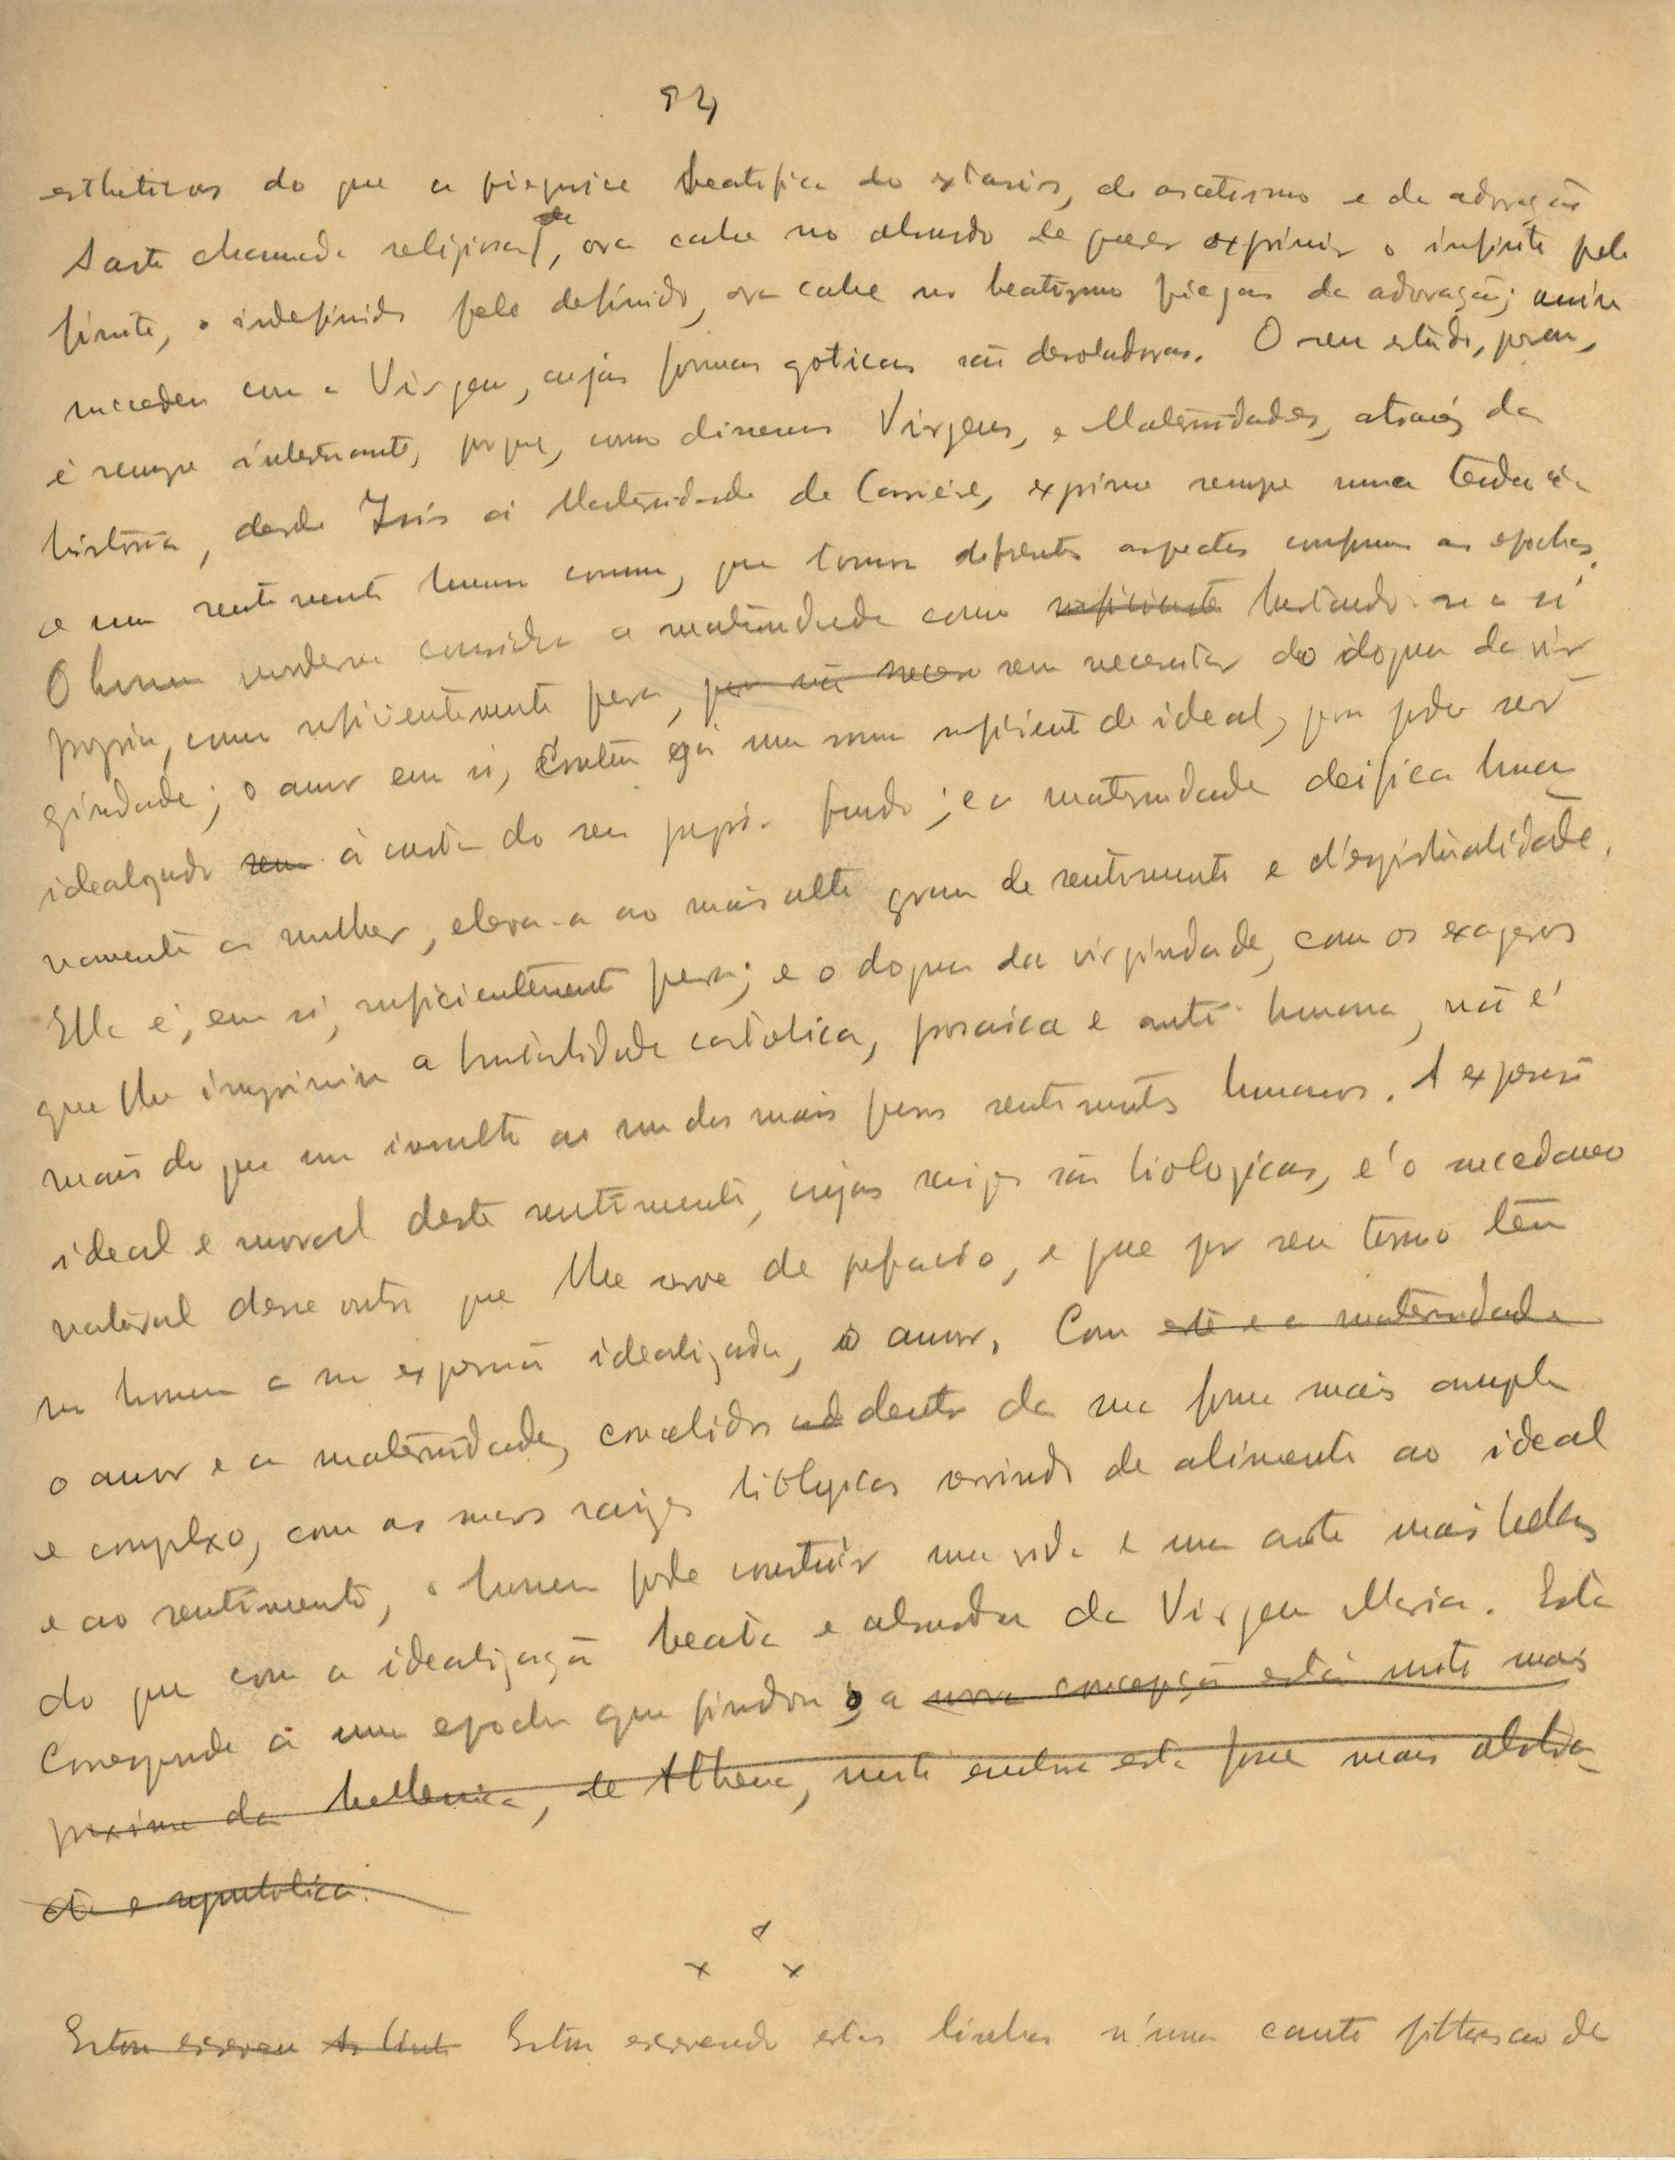 94
estheticos do que a pieguice beatifica do extasis, do ascetismo e da adoração
A arte chamada religiosa, ora cahe no absurdo de querer exprimir o infinito pelo
finito, o indefinido pelo definido, ora cahe no beatismo piegas da adoração; assim
succedeu com a Virgem, cujas formas goticas são desoladoras. O seu estudo, porem,
é sempre interessante, porque, como dissemos Virgens, e Maternidades, através da
historia, desde Isis á Maternidade de Carrière, exprime sempre uma tendencia
e um sentimento humano commum, que toma differentes aspectos conforme as epochas.
O homem moderno considera a maternidade como sufficiente bastando-se a si
propria, como sufficientemente pura, sem necessitar do dogma da vir
gindade; o amor em si, contem já uma somma sufficiente de ideal, para poder ser
idealizado sem á custa do seu proprio fundo; e a maternidade deifica huma
namente a mulher, eleva-a ao mais alto grau de sentimento e d'espiritualidade.
Ella é, em si, sufficientemente pura; e o dogma da virgindade, com os exageros
que lhe imprimiu a brutalidade catolica, prosaica e anti-humana, não é
mais do que um insulto ao um dos mais puros sentimentos humanos. A expressão
ideal e moral deste sentimento, cujas raizes são biologicas, é o succedaneo
natural desse outro que lhe serve de prefacio, e que por seu turno tem
no homem a sua expressão idealizada, o amor. Com este e a maternidade
o amor e a maternidade, concebidos dentro da sua forma mais ampla
e complexo, com as suas raizes biologicas servindo de alimento ao ideal
e ao sentimento, o homem pode construir uma vida e uma arte mais bellas
do que com a idealização beata e absurda da Virgem Maria. Esta
corresponde a uma epocha que findou; a nossa concepção está muito mais
proxima da hellenica, de Athena, muito embora esta fosse mais abstra
cta e symbolica.
x x x
Estou escreven As linh Estou escrevendo estas linhas n'uma canto pittoresco de